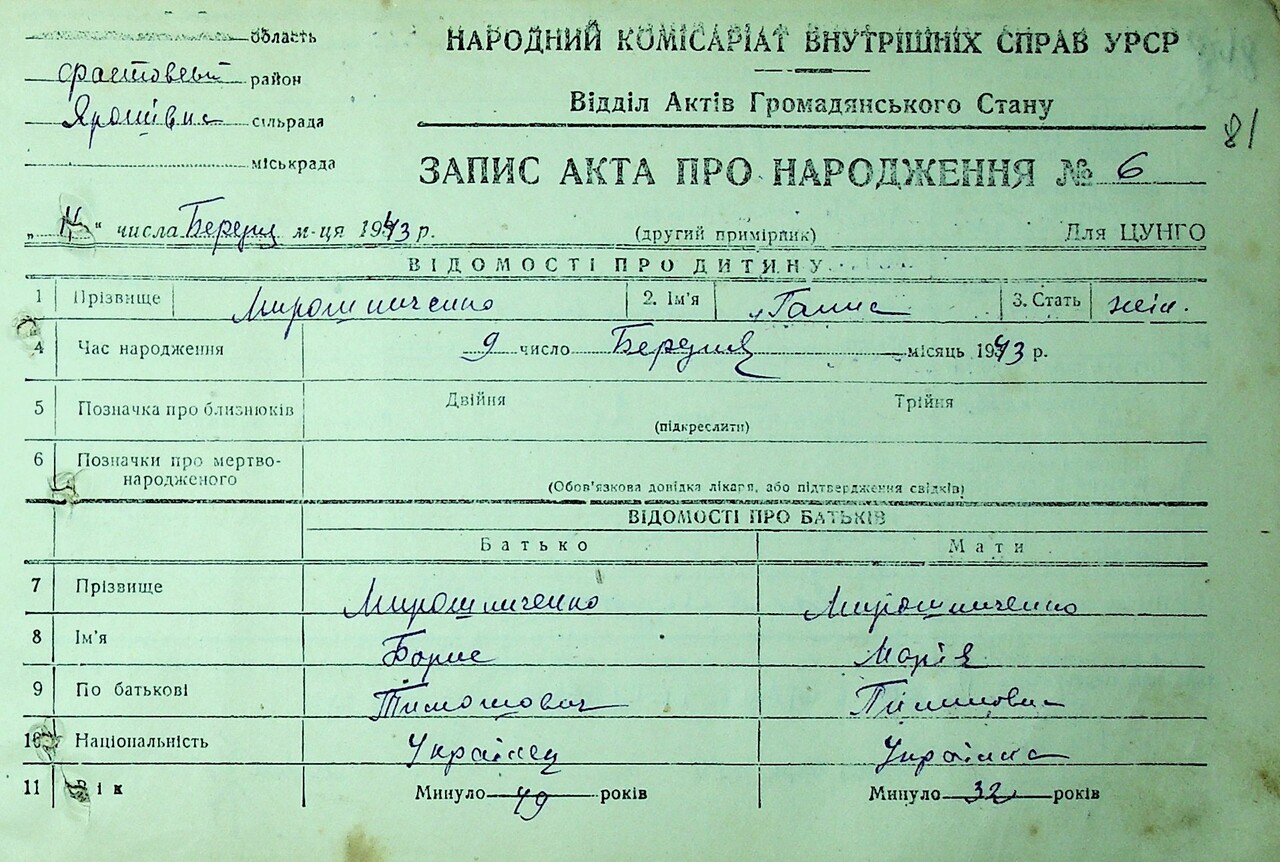 область
НАРОДНИЙ КОМІСАРІАТ ВНУТРІШНІХ СПРАВ УРСР
фастовськ район
Відділ Актів Громадянського Стану
Ярошівка сільрада
81
міськрада
ЗАПИС АКТА ПРО НАРОДЖЕННЯ № 6
„ “ числа м-ця 1943 р. (другий примірник) Для ЦУНГО
ВІДОМОСТІ ПРО ДИТИНУ
1 Прізвище Мирошниченко 2. Ім'я Галина 3. Стать жін.
4 Час народження 9 число Березня місяць 1943 р.
5 Позначка про близнюків Двійня Трійня
(підкреслити)
6 Позначки про мертво-
народженого (Обов'язкова довідка лікаря, або підтвердження свідків)
ВІДОМОСТІ ПРО БАТЬКІВ
Батько Мати
7 Прізвище Мирошниченко Мирошниченко
8 Ім'я Борис Марія
9 По батькові Тимошович
10 Національність Українец Українка
11 Вік Минуло 49 років Минуло 32 років